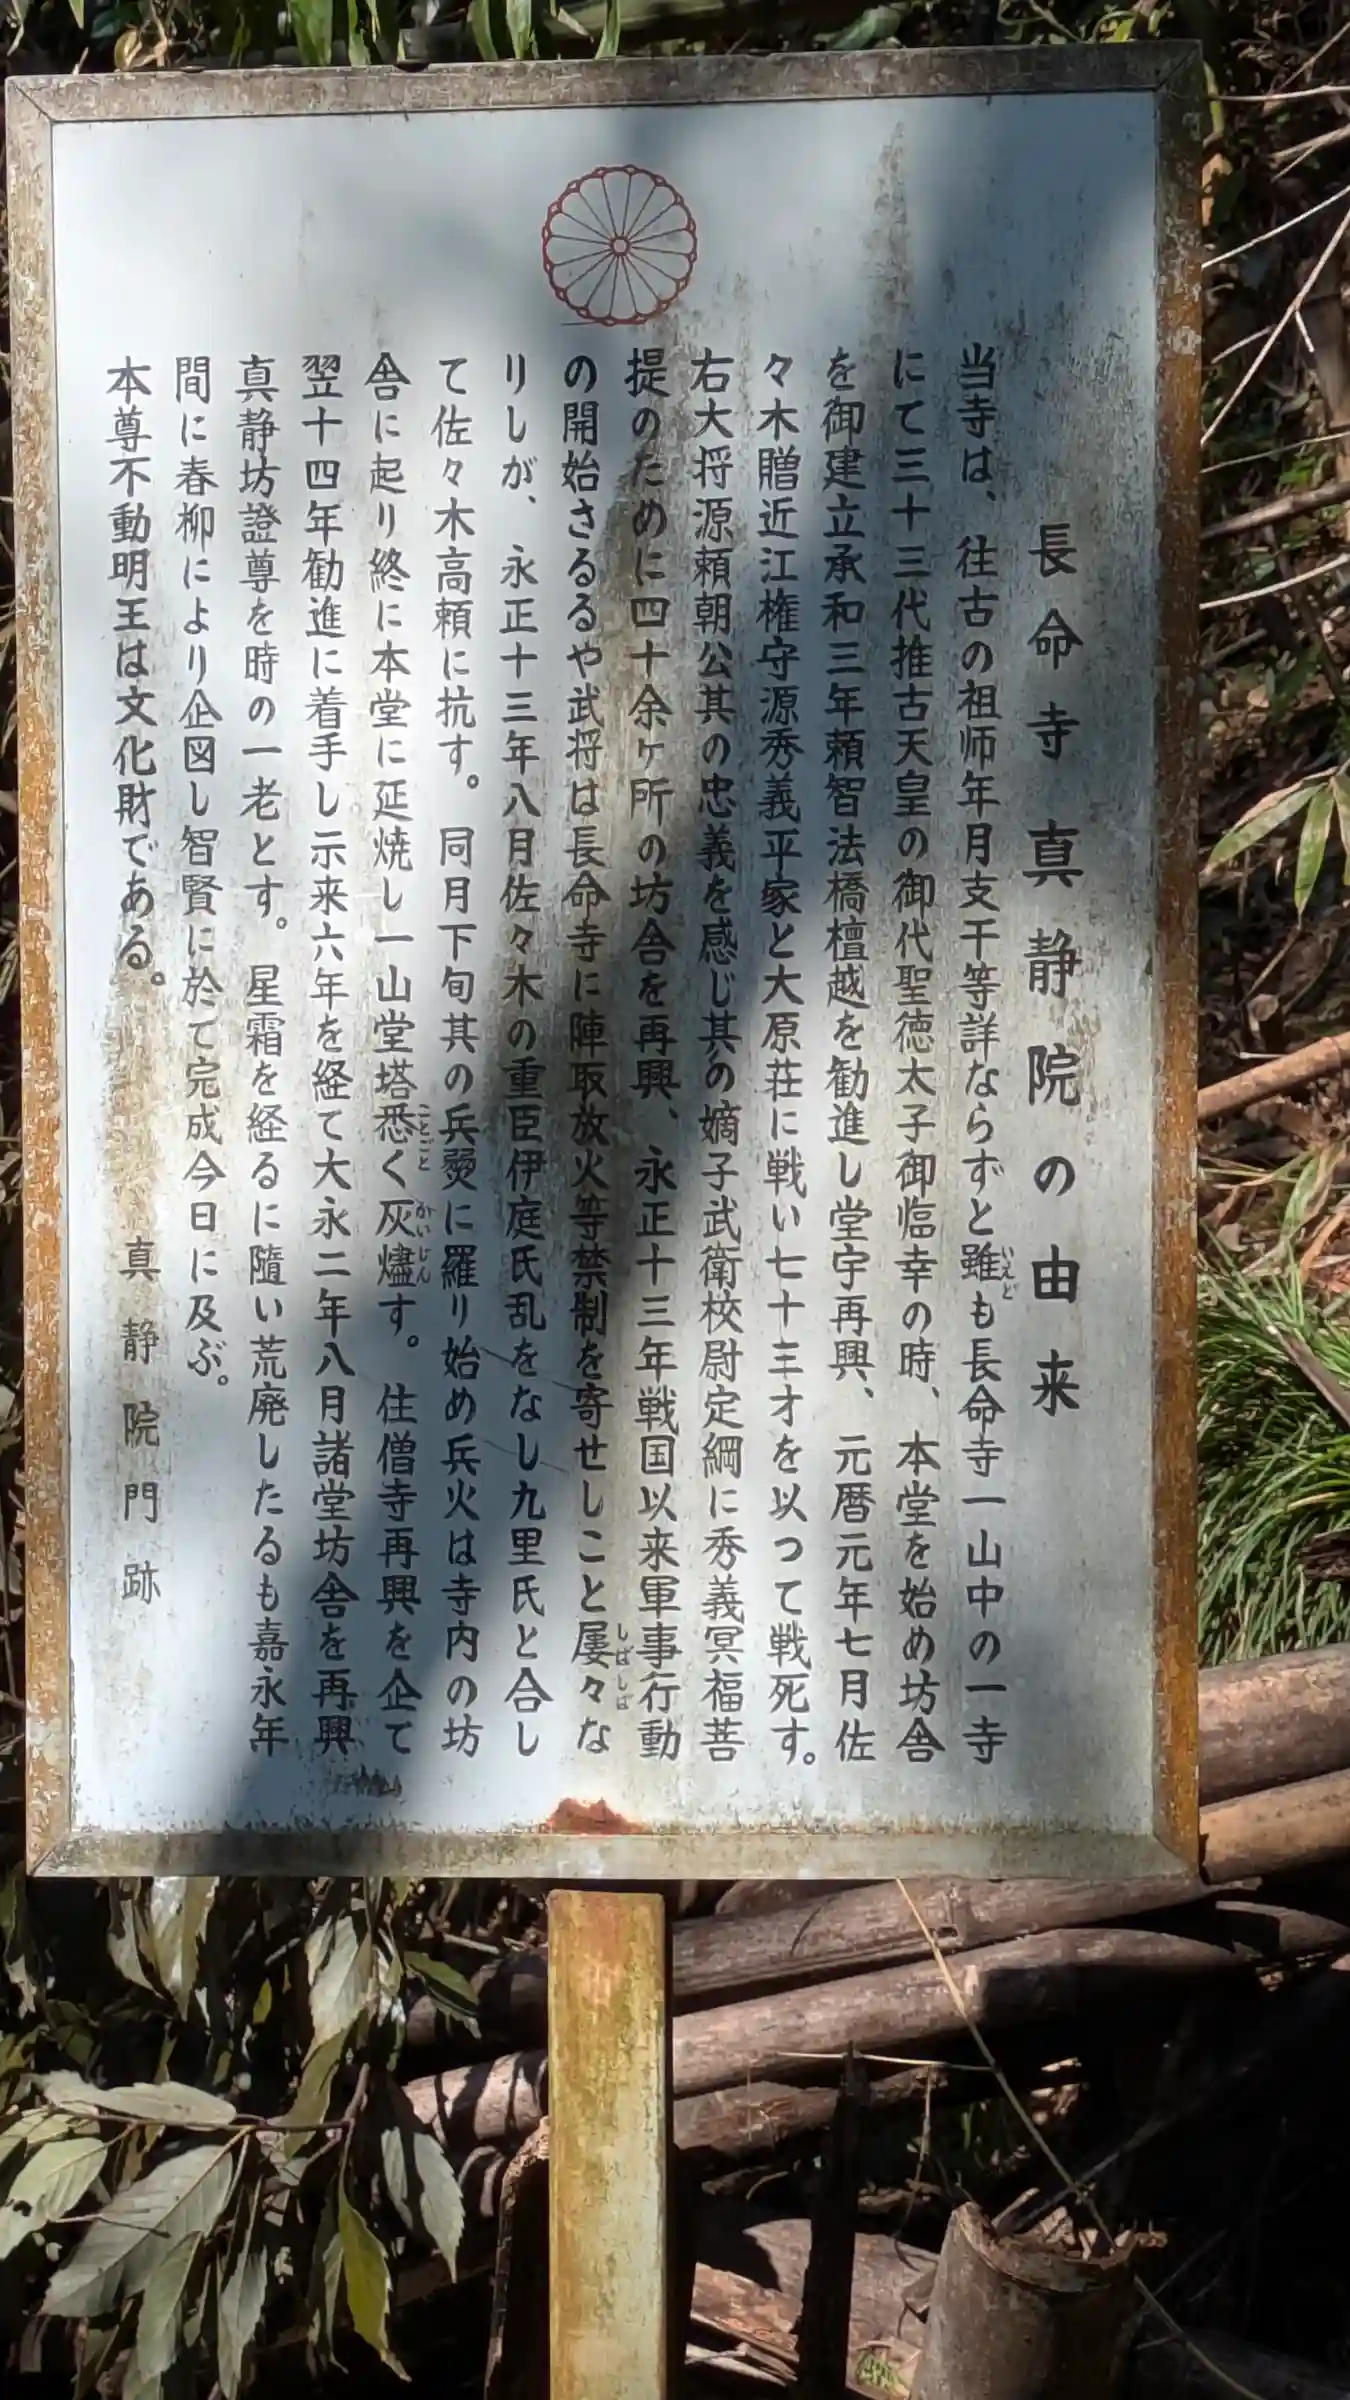 長命寺真静院の由来
当寺は、往古の祖師年月支干等詳ならずと雖も長命寺一山中の一寺
いえど
にて三十三代推古天皇の御代聖徳太子御臨幸の時、本堂を始め坊舎
を御建立承和三年頼智法橋檀越を勧進し堂宇再興、元暦元年七月佐
々木贈近江権守源秀義平家と大原荘に戦い七十三才を以つて戦死す。
右大将源頼朝公其の忠義を感じ其の嫡子武衛校尉定綱に秀義冥福菩
提のために四十余ヶ所の坊舎を再興、永正十三年戦国以来軍事行動
の開始さるるや武将は長命寺に陣取放火等禁制を寄せしこと屡々な
しばしば
りしが、永正十三年八月佐々木の重臣伊庭氏乱をなし九里氏と合し
て佐々木高頼に抗す。同月下旬其の兵燹に羅り始め兵火は寺内の坊
舎に起り終に本堂に延焼し一山堂塔悉く灰燼す。住僧寺再興を企て
ことごと かいじん
翌十四年勧進に着手し示来六年を経て大永二年八月諸堂坊舎を再興
真静坊證尊を時の一老とす。星霜を経るに隨い荒廃したるも嘉永年
間に春柳により企図し智賢に於て完成今日に及ぶ。
本尊不動明王は文化財である。
真静院門跡